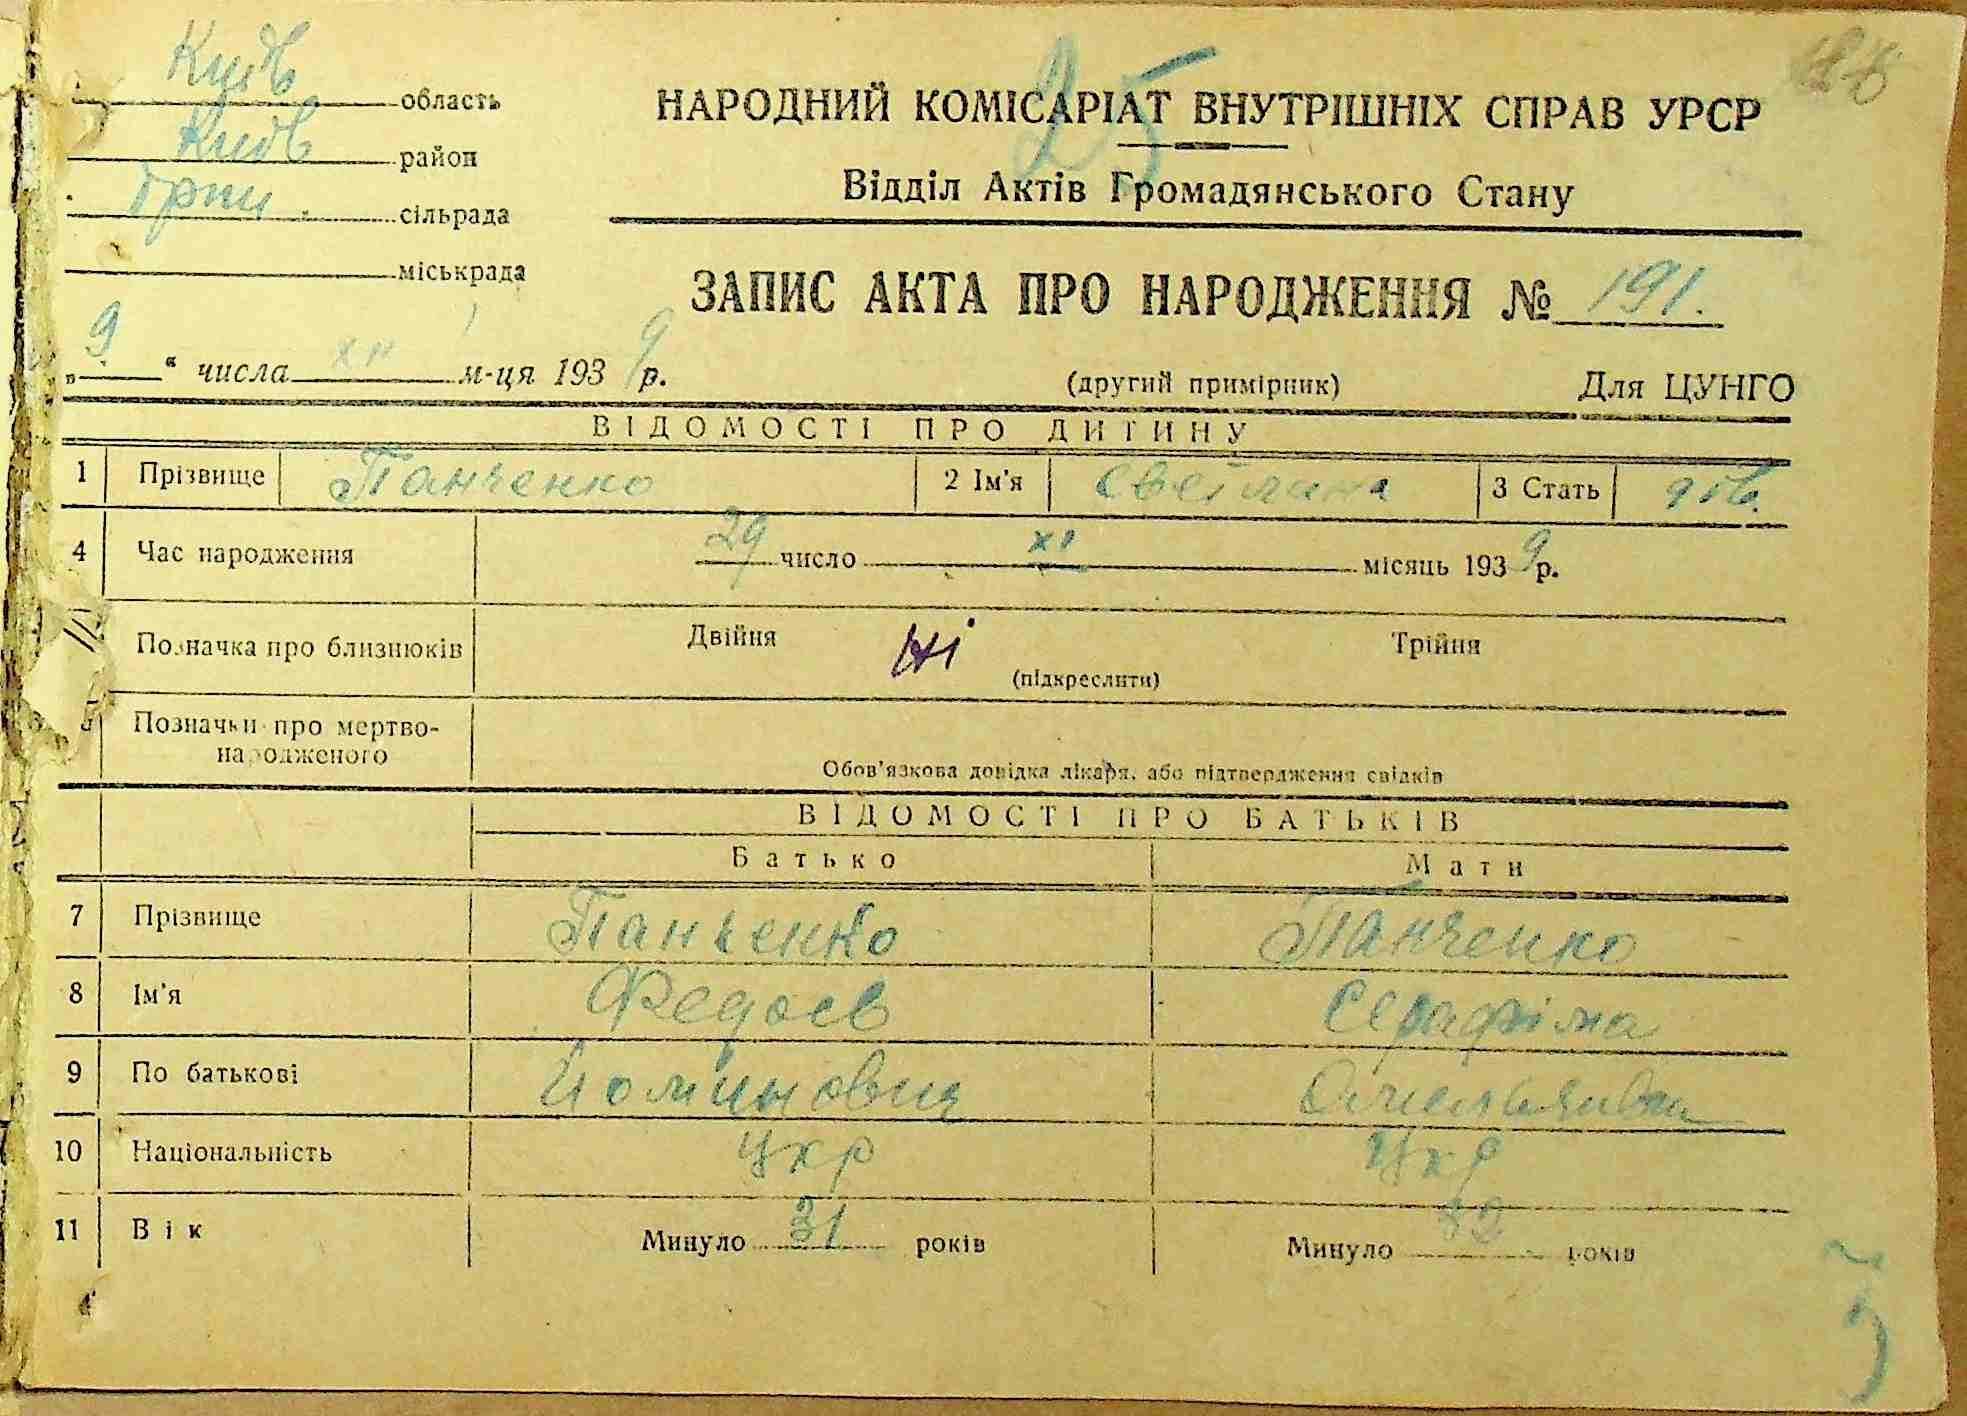 Київ область
25
НАРОДНИЙ КОМІСАРІАТ ВНУТРІШНІХ СПРАВ УРСР
Київ район
Відділ Актів Громадянського Стану
сільрада
міськрада
ЗАПИС АКТА ПРО НАРОДЖЕННЯ № 191.
„9“ числа XII м-ця 1939 р.
(другий примірник) Для ЦУНГО
ВІДОМОСТІ ПРО ДИТИНУ
1 Прізвище Панченко 2 Ім'я Светлана 3 Стать дів.
4 Час народження 29 число XI місяць 1939 р.
Позначка про близнюків Двійня Ні Трійня
(підкреслити)
Позначки про мертво-
народженого
Обов'язкова довідка лікаря, або підтвердження свідків
ВІДОМОСТІ ПРО БАТЬКІВ
Батько Мати
7 Прізвище Панченко Панченко
8 Ім'я Серафіма
9 По батькові
10 Національність Укр Укр
11 Вік Минуло 31 років Минуло 32 років